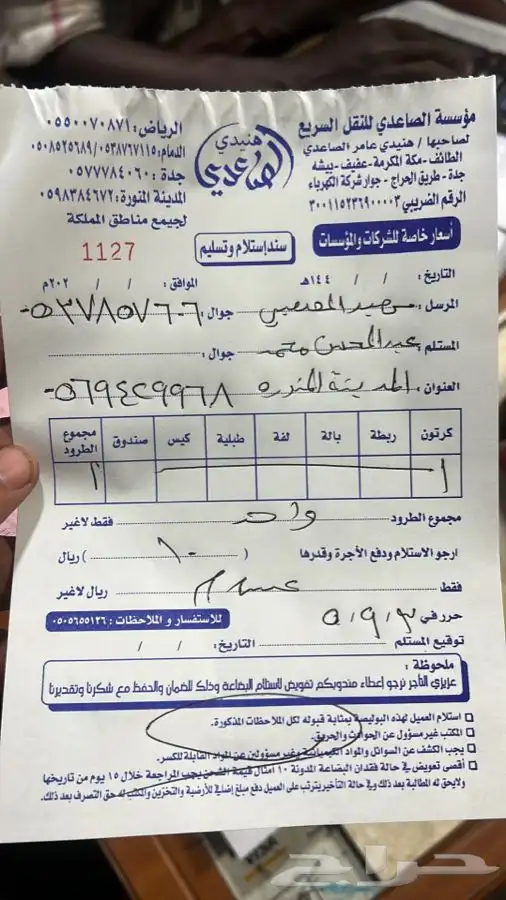 مؤسسة الصاعدي للنقل السريع
لصاحبها / هنيدي عامر الصاعدي
الطائف - مكة المكرمة - عفيف - بيشه
جدة - طريق الحراج - جوار شركة الكهرباء
الرقم الضريبي ٣٠٠١١٥٢٣٦٩٠٠٠٠٣
هنيدي
الصاعدي
الرياض : ٠٥٥٠٠٧٠٨٧١
الدمام : ٠٥٣٨٧٦٧١١٥ / ٠٥٠٨٥٢٥٦٨٩
جدة : ٠٥٧٧٧٨٤٠٦٠
المدينة المنورة : ٠٥٩٨٣٨٤٦٧٢
لجميع مناطق المملكة
أسعار خاصة للشركات والمؤسسات
سند إستلام وتسليم
1127
التاريخ : / / ١٤٤هـ الموافق : / / ٢٠٢م
المرسل : جوال : ٠٥٣٧٨٥٧٦٠٦
المستلم : عبدالمحسن محمد جوال :
العنوان : المدينة المنوره ٠٥٦٩٤٢٩٩٦٨
كرتون ربطة بالة لفة طبلية كيس صندوق مجموع الطرود
١ ١
مجموع الطرود واحد فقط لاغير
ارجو الاستلام ودفع الأجرة وقدرها ( ١٠ ) ريال
فقط ريال لاغير
حرر في ٣ / ٩ / ٥
للاستفسار و الملاحظات : ٠٥٠٥٦٥٥١٣٦
توقيع المستلم التاريخ : / /
ملحوظة :
عزيزي التاجر نرجو إعطاء مندوبكم تفويض لاستلام البضاعة وذلك للضمان والحفظ مع شكرنا وتقديرنا
استلام العميل لهذه البوليصة بمثابة قبوله لكل الملاحظات المذكورة.
المكتب غير مسؤول عن الحوادث والحريق.
يجب الكشف عن السوائل والمواد الكيميائية وغير مسؤولين عن المواد القابلة للكسر.
أقصى تعويض في حالة فقدان البضاعة المدونة ١٠ أمثال قيمة الشحن يجب المراجعة خلال ١٥ يوم من تاريخها
ولايحق له المطالبة بعد ذلك وفي حالة التأخير يترتب على العميل دفع مبلغ إضافي للأرضية والتخزين وللمكتب له حق التصرف بعد ذلك.
حراج